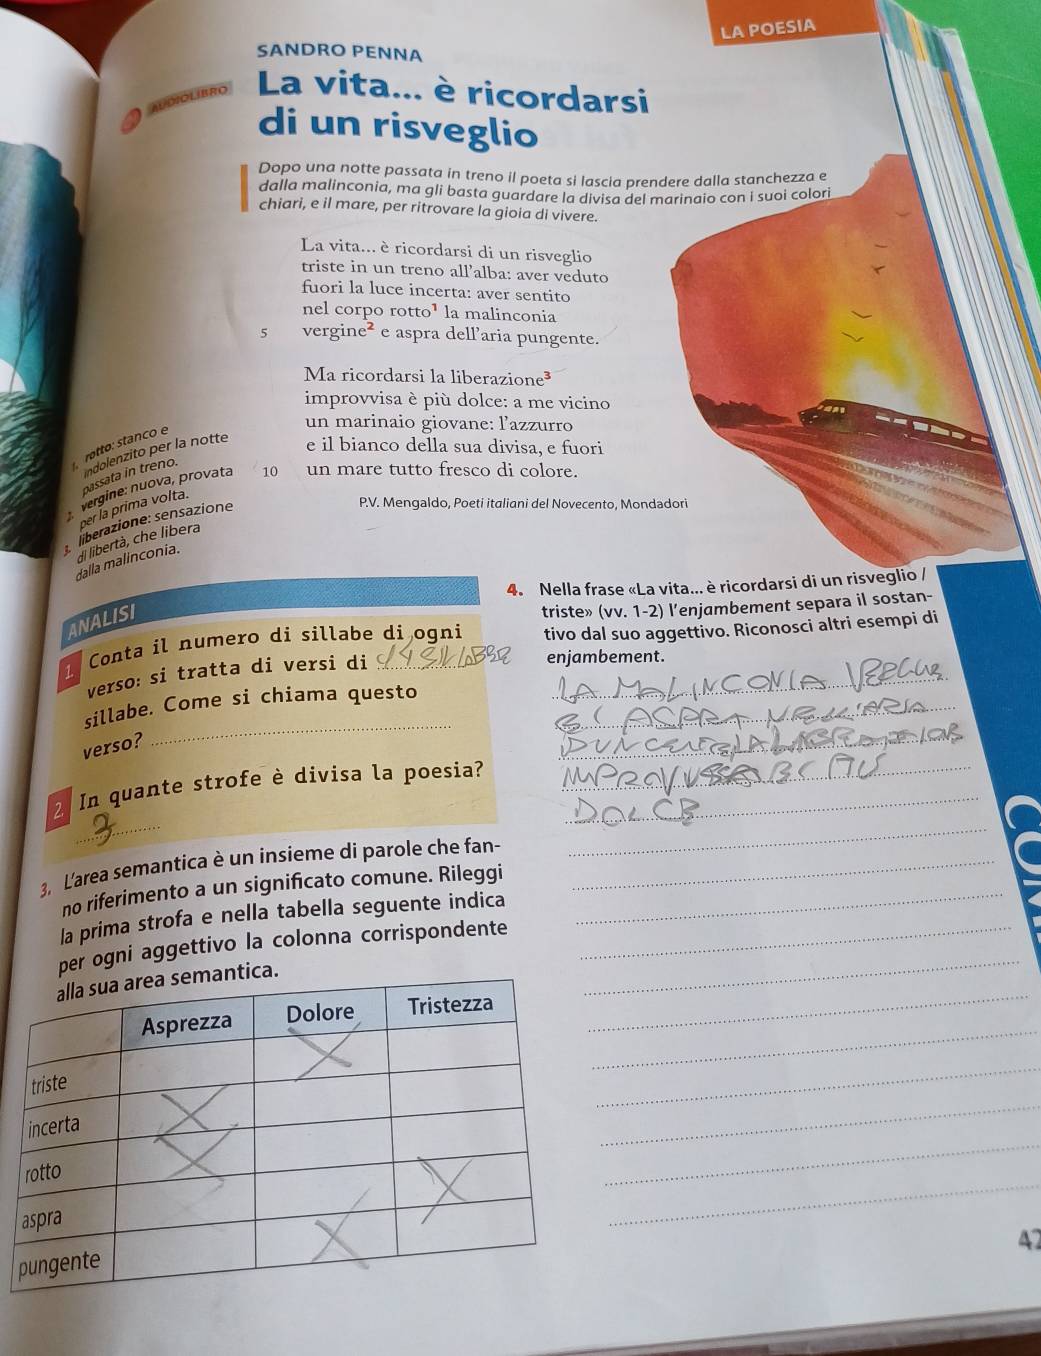 LA POESIA
SANDRO PENNA
AUDIOLIBRO
La vita... è ricordarsi
di un risveglio
Dopo una notte passata in treno il poeta si lascia prendere dalla stanchezza e
dalla malinconia, ma gli basta guardare la divisa del marinaio con i suoi colori
chiari, e il mare, per ritrovare la gioia di vivere.
La vita... è ricordarsi di un risveglio
triste in un treno all'alba: aver veduto
fuori la luce incerta: aver sentito
nel corpo rotto¹ la malinconia
5 vergine² e aspra dell'aria pungente.
Ma ricordarsi la liberazione³
improvvisa è più dolce: a me vicino
un marinaio giovane: l'azzurro
e il bianco della sua divisa, e fuori
10 un mare tutto fresco di colore.
P.V. Mengaldo, Poeti italiani del Novecento, Mondadori
1. rotto: stanco e
indolenzito per la notte
passata in treno.
2. vergine: nuova, provata
per la prima volta.
3. liberazione: sensazione
di libertà, che libera
dalla malinconia.
ANALISI
1. Conta il numero di sillabe di ogni
verso: si tratta di versi di
sillabe. Come si chiama questo
verso?
2. In quante strofe è divisa la poesia?
2
3. L'area semantica è un insieme di parole che fan-
no riferimento a un significato comune. Rileggi
la prima strofa e nella tabella seguente indica
per ogni aggettivo la colonna corrispondente
alla sua area semantica.
Asprezza Dolore Tristezza
triste X
incerta X
rotto X
aspra X
pungente X
4. Nella frase «La vita... è ricordarsi di un risveglio /
triste» (vv. 1-2) l'enjambement separa il sostan-
tivo dal suo aggettivo. Riconosci altri esempi di
enjambement.
LA MALINCONIA
DOLCE
42